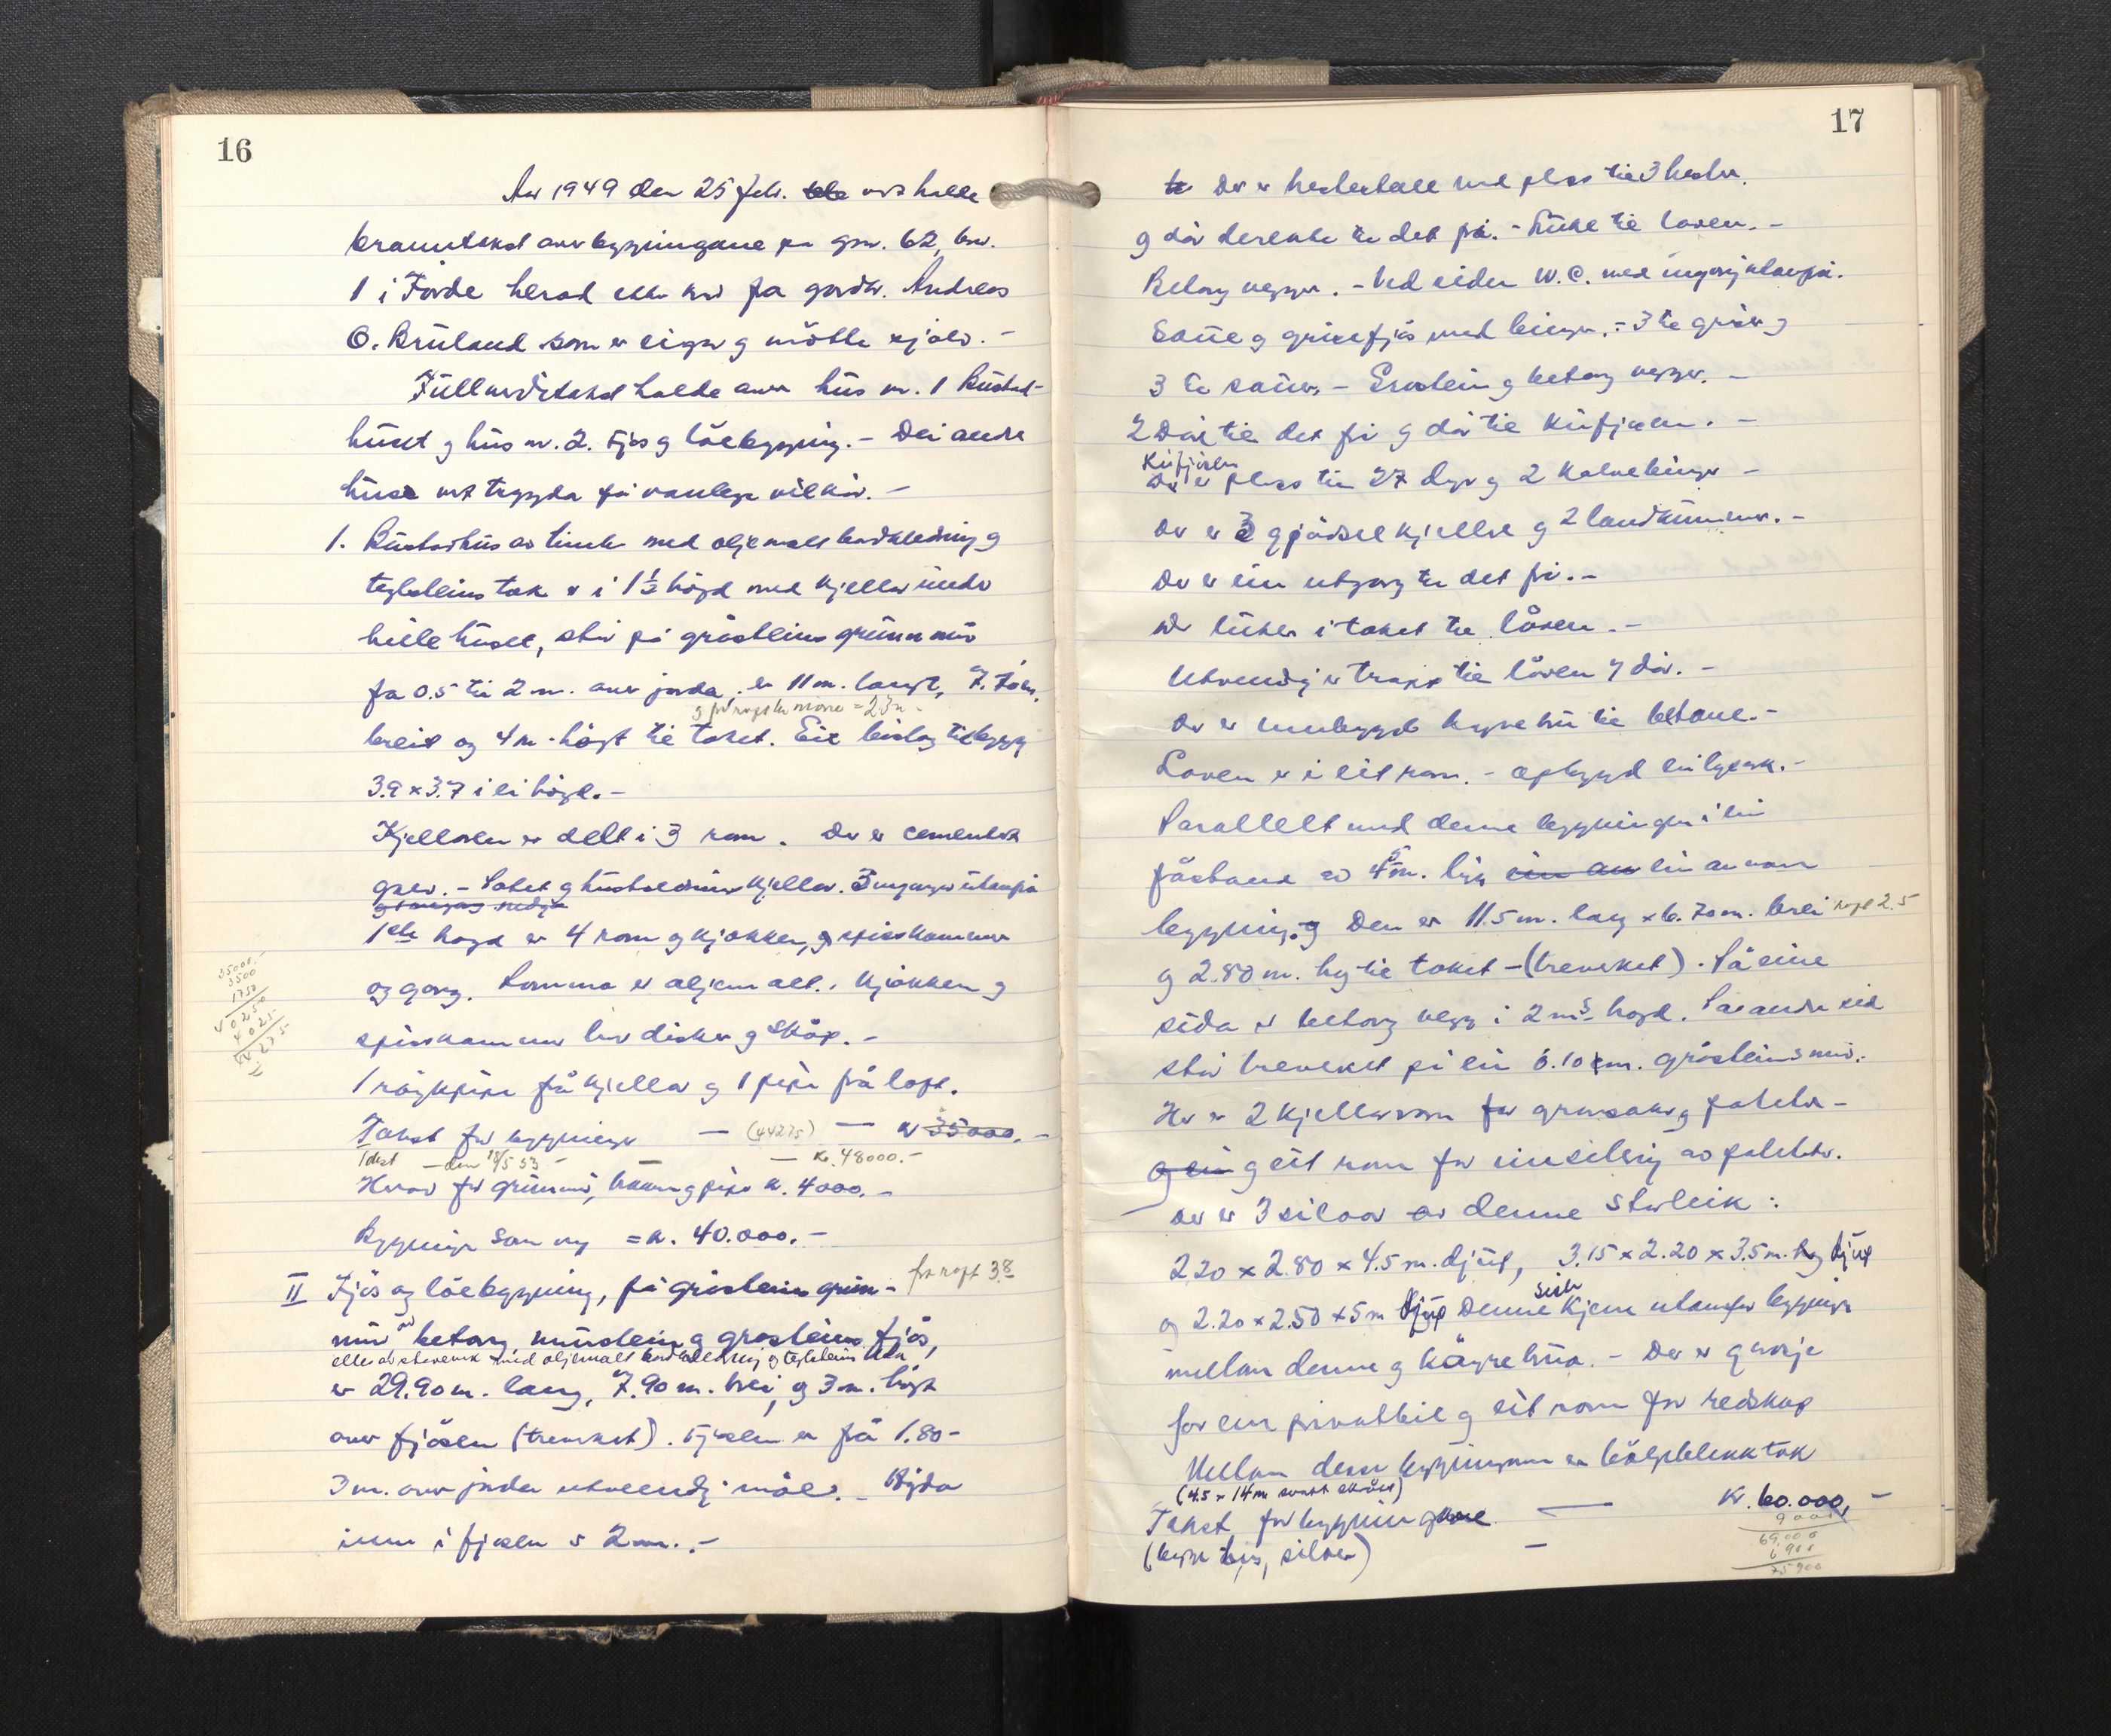 16
Aar 1949 den 25 febr. vart halde
branntakst over bygningane på gnr. 62, bnr.
1 i Förde herad etter krav fra gardbr. Andreas
O. Bruland som er eigar og mötte sjölv. -
Fullverditakst halde over hus nr. 1 Bustad-
huset og hus nr. 2. Fjös og löebygging. - Dei andre
husa vert trygda på vanlege vilkår. -
1. Bustadhus av timber med oljemalt bordkledning og
teglsteins tak er i 1½ högd med kjellar under
heile huset, står på gråsteins grunnmur
fra 0.5 til 2 m. over jorda. er 11 m. langt, 7.70 m.
breit og 4 m. högt til taket. Eit bislag tilbygg
3.9 x 3.7 i ei högd. -
Kjellaren er delt i 3 rom. Der er cementert
golv. - Potet og husholdnings kjellar. 3 inngangar utanfrå
1ste högd er 4 rom og kjökken, og spiskammer
og gang. Romma er oljemalt. Kjökken og
spiskammer har disker og skåp. -
1 röykpipe frå kjellar og 1 pipe frå loft.
Takst for bygningen — (44275) — kr 35000. -
Takst — den 18/5 53 — — Kr. 48000. -
Herav for grunnmur, trapper og pipe kr. 4000. -
Bygningen som ny = kr. 40.000. -
II Fjös og löebygging, på gråsteins grunn-
mur av betong, murstein og gråsteins fjös,
elles av stavverk med oljemalt bordkledning og teglsteins tak
er 29.90 m. lang, 7.90 m. brei, og 3 m. högt
over fjösen (treverket). Fjösen er frå 1.80 -
3 m. over jorda utvendig mål. - Högda
inne i fjösen er 2 m. -
35000.-
3500
1750
40250
4025
44275
17
Der er hestestall med plass til 3 hestar.
og dör derende til det fri. - Luke til låven. -
Betong vegger. - Ved sida W.C. med inngong utanfrå.
Saue og grisefjös med bingar. = 3 til griser og
3 til sauer. - Gråstein og betong vegger. -
2 Dörer til det fri og dör til kufjösen. -
Kufjösen
Der er plass til 27 dyr og 2 kalvebingar -
Der er 3 gjödsel kjellar og 2 landkummer. -
Der er ein utgang til det fri. -
Der luker i taket til låven. -
Utvendig er trapp til låven og dör. -
Der er innbygd köyrebru til betane. -
Låven er i eit rom. -
Parallelt med denne bygningen i ein
fråstand av 4.5 m. ligg ein annan
bygning. Den er 11.5 m. lang x 6.70 m. brei
og 2.80 m. hög til taket - (treverket). På eine
sida er betong vegg i 2 m's högd. På andre sida
står treverket på ein 0.10 m. gråsteins mur.
Her er 2 kjellarrom for grönsaker og poteter -
og eit rom for innsilering av poteter.
Der er 3 siloar av denne storleik:
2.20 x 2.80 x 4.5 m. djup, 3.15 x 2.20 x 3.5 m. djup
og 2.20 x 2.50 x 5 m djup Denne siste kjem utanfor bygningen
mellom denne og köyrebrua. - Der er garasje
for ein privatbil og eit rom for redskap
Mellom desse bygningane er bölgeblikk tak
(4.5 x 14 m
Takst for bygningane — Kr. 60.000. -
9000
69.000
6900
75900